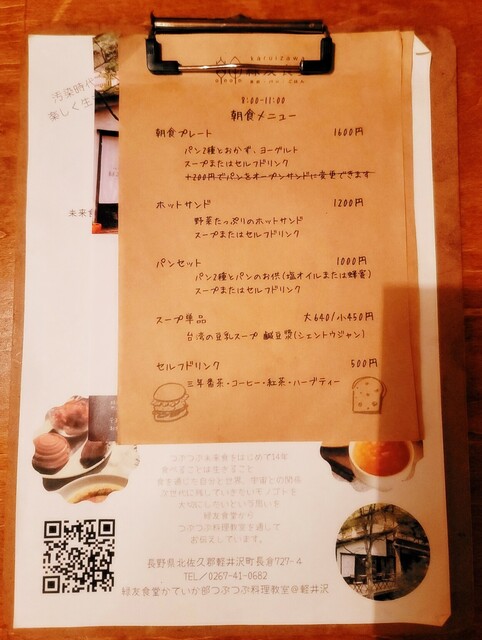 karuizawa
緑友食堂
8:00-11:00
朝食メニュー
朝食プレート 1600円
パン2種とおかず、ヨーグルト
スープまたはセルフドリンク
+200円でパンをオープンサンドに変更できます
ホットサンド 1200円
野菜たっぷりのホットサンド
スープまたはセルフドリンク
パンセット 1000円
パン2種とパンのお供(塩オイルまたは蜂蜜)
スープまたはセルフドリンク
スープ単品 大640/小450円
台湾の豆乳スープ 鹹豆漿(シェントウジャン)
セルフドリンク 500円
三年番茶・コーヒー・紅茶・ハーブティー
汚染時代
楽しく生
未来食
つぶつぶ未来食をはじめて14年
食べることは生きること
食を通じた自分と世界、宇宙との関係
次世代に残していきたいモノコトを
大切にしたいという思いを
緑友食堂から
つぶつぶ料理教室を通して
お伝えしています。
長野県北佐久郡軽井沢町長倉727-4
TEL/0267-41-0682
緑友食堂かていか部つぶつぶ料理教室@軽井沢